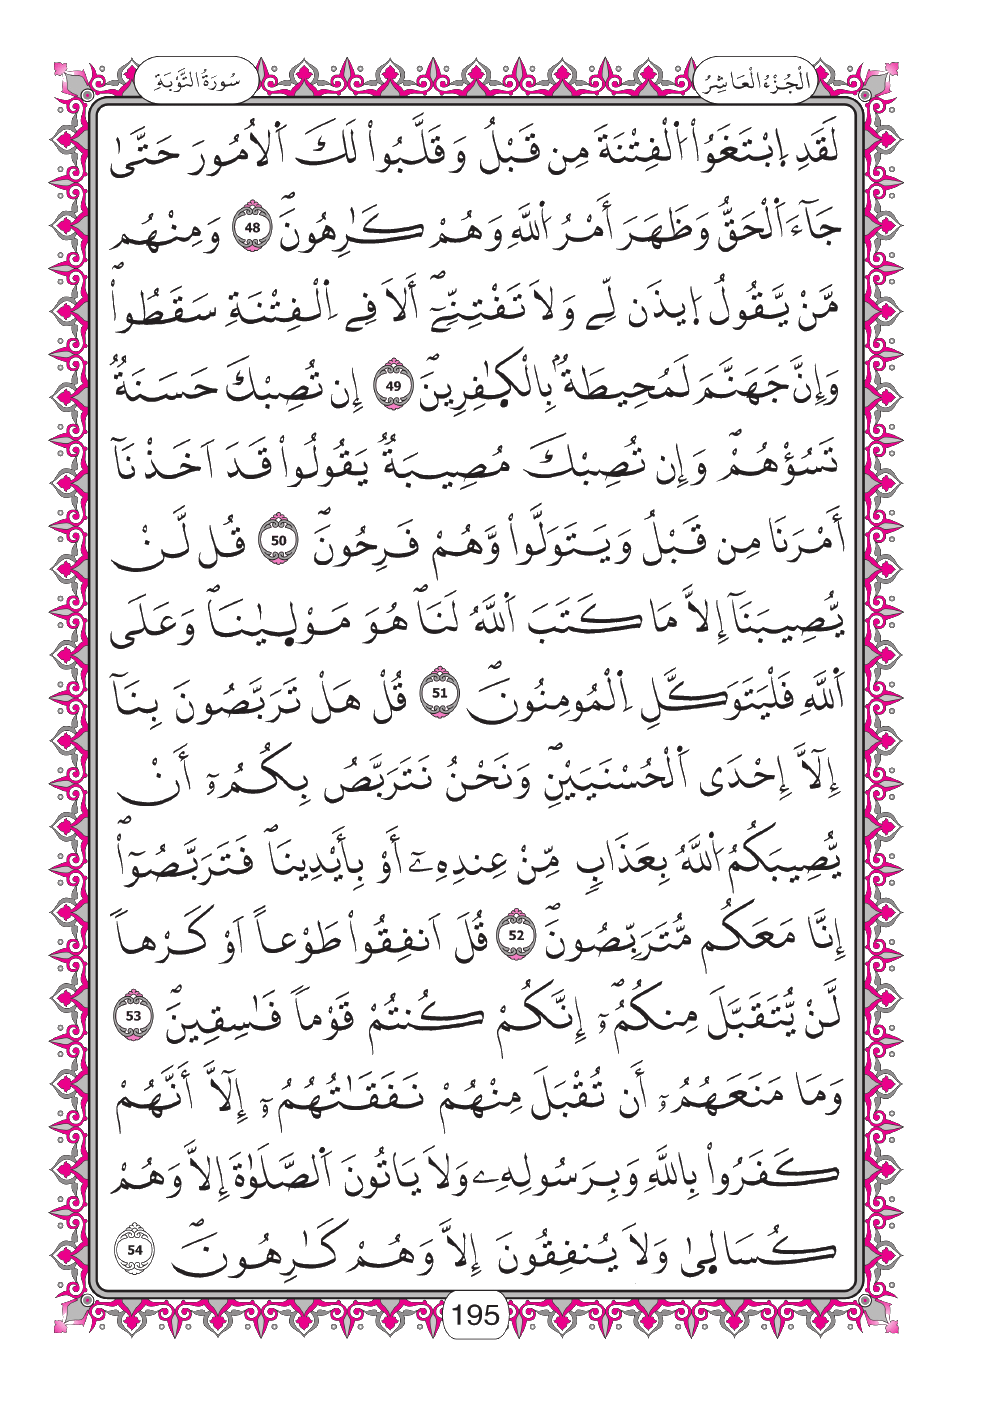 الْجُزْءُ الْعَاشِرُ
سُورَةُ التَّوْبَةِ
لَقَدِ اِبْتَغَوُاْ اُلْفِتْنَةَ مِن قَبْلُ وَقَلَّبُواْ لَكَ اَلْأُمُورَ حَتَّىٰ
جَآءَ اَلْحَقُّ وَظَهَرَ أَمْرُ اُللَّهِ وَهُمْ كَٰرِهُونَۖ 48 وَمِنْهُم
مَّنْ يَّقُولُ اُ۪يذَن لِّے وَلَا تَفْتِنِّےٓۖ أَلَا فِے اِلْفِتْنَةِ سَقَطُواْۖ
وَإِنَّ جَهَنَّمَ لَمُحِيطَةُۢ بِالْكٰ۪فِرِينَۖ 49 إِن تُصِبْكَ حَسَنَةٞ
تَسُؤْهُمْۖ وَإِن تُصِبْكَ مُصِيبَةٞ يَقُولُواْ قَدَ اَخَذْنَآ
أَمْرَنَا مِن قَبْلُ وَيَتَوَلَّواْ وَّهُمْ فَرِحُونَۖ 50 قُل لَّنْ
يُّصِيبَنَآ إِلَّا مَا كَتَبَ اَللَّهُ لَنَاۖ هُوَ مَوْل۪يٰنَاۖ وَعَلَى
اَللَّهِ فَلْيَتَوَكَّلِ اِلْمُومِنُونَۖ 51 قُلْ هَلْ تَرَبَّصُونَ بِنَآ
إِلَّآ إِحْدَى اَلْحُسْنَيَيْنِۖ وَنَحْنُ نَتَرَبَّصُ بِكُمُۥٓ أَنْ
يُّصِيبَكُمُ اُللَّهُ بِعَذَابٖ مِّنْ عِندِهِۦٓ أَوْ بِأَيْدِينَاۖ فَتَرَبَّصُوٓاْۖ
إِنَّا مَعَكُم مُّتَرَبِّصُونَۖ 52 قُلَ اَنفِقُواْ طَوْعاً اَوْ كَرْهاٗ
لَّنْ يُّتَقَبَّلَ مِنكُمُۥٓۖ إِنَّكُمْ كُنتُمْ قَوْماٗ فَٰسِقِينَۖ 53
وَمَا مَنَعَهُمُۥٓ أَن تُقْبَلَ مِنْهُمْ نَفَقَٰتُهُمُۥٓ إِلَّآ أَنَّهُمْ
كَفَرُواْ بِاللَّهِ وَبِرَسُولِهِۦ وَلَا يَاتُونَ اَلصَّلَوٰةَ إِلَّا وَهُمْ
كُسَال۪يٰ وَلَا يُنفِقُونَ إِلَّا وَهُمْ كَٰرِهُونَۖ 54
195